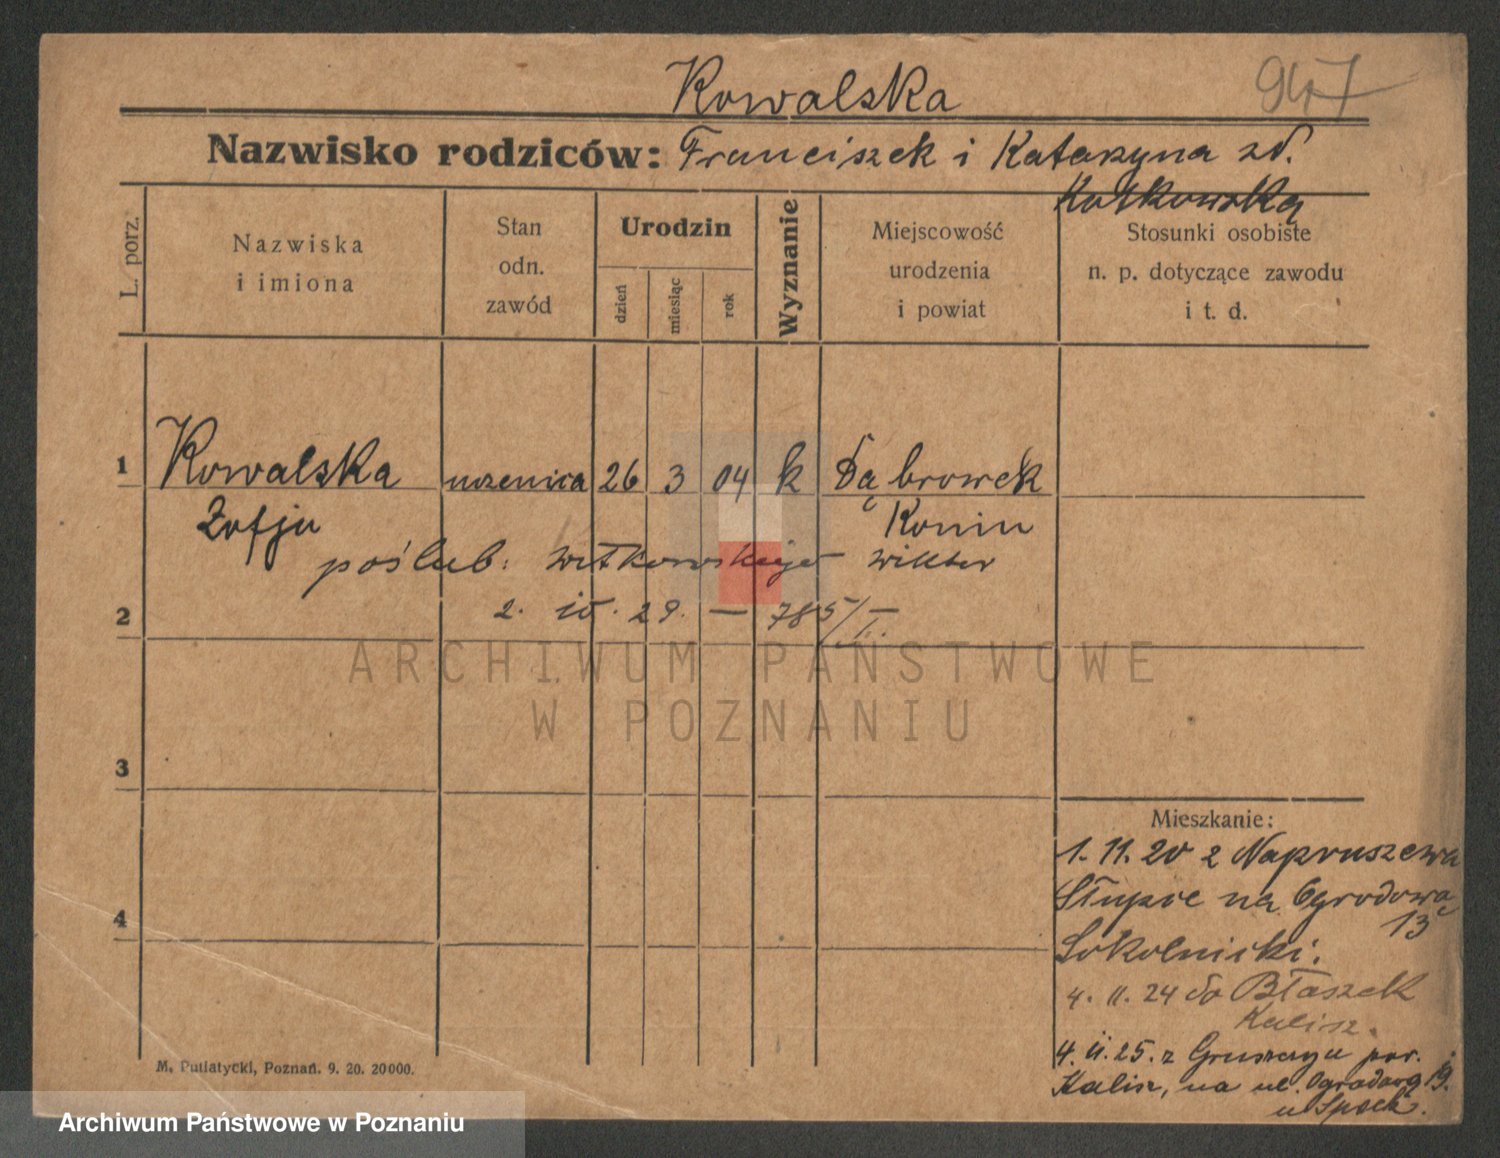 Kowalska
947
Nazwisko rodziców: Franciszek i Katarzyna zd.
Kotkowską
L. porz.
Nazwiska
i imiona
Stan
odn.
zawód
Urodzin
dzień
miesiąc
rok
Wyznanie
Miejscowość
urodzenia
i powiat
Stosunki osobiste
n. p. dotyczące zawodu
i t. d.
1 Kowalska uczenica 26 3 04 k Dąbrowek
Zofja Konin
poślub. Witkowskiego Wiktor
2. IV. 29. — 785/I.
2
ARCHIWUM PAŃSTWOWE
W POZNANIU
3
4
Mieszkanie:
1. 11. 20 z Napruszewa
Słupce na Ogrodową
13
Sokolnicki.
4. II. 24 do Błaszek
Kalisz.
4. II. 25. z Gruszczyc pow.
Kalisz, na ul. Ogrodową 19.
u
M. Putiatycki, Poznań. 9. 20. 20000.
Archiwum Państwowe w Poznaniu